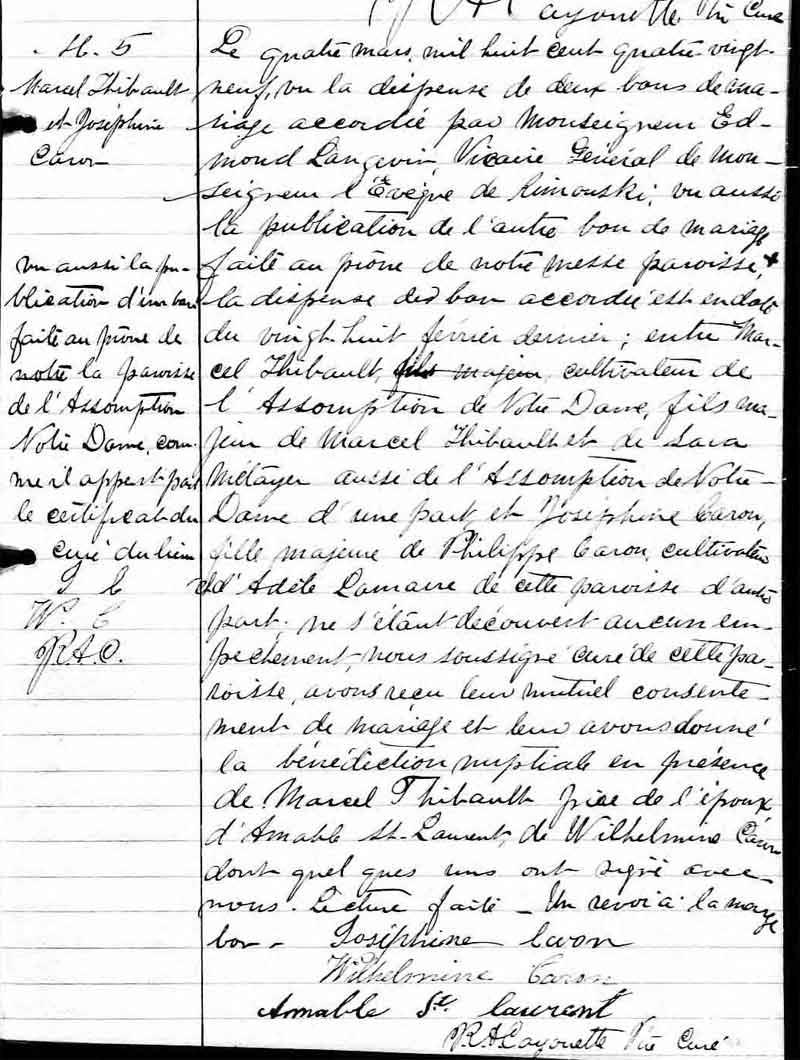 Ptre Curé
M. 5
Marcel Thibault
et Joséphine
Caron
vu aussi la pu-
blication d'un ban
faite au prône de
notre la paroisse
de l'Assomption
Notre Dame, com-
me il appert par
le certificat du
curé du lieu
J. C
W. C
R.A.C.
Le quatre mars, mil huit cent quatre-vingt-
neuf, vu la dispense de deux bans de ma-
riage accordée par Monseigneur Ed-
mond Langevin, Vicaire Général de Mon-
seigneur l'Evêque de Rimouski; vu aussi
la publication de l'autre ban de mariage
faite au prône de notre messe paroisse, +
la dispense des ban accordée est en date
du vingt-huit février dernier; entre Mar-
cel Thibault, fils majeur, cultivateur de
l'Assomption de Notre Dame, fils ma-
jeur de Marcel Thibault et de Sara
Métayer aussi de l'Assomption de Notre-
Dame d'une part, et Joséphine Caron,
fille majeure de Philippe Caron, cultivateur
et d'Adèle Lamarre de cette paroisse d'autre
part; ne s'étant découvert aucun em-
pêchement, nous soussigné curé de cette pa-
roisse, avons reçu leur mutuel consente-
ment de mariage et leur avons donné
la bénédiction nuptiale en présence
de Marcel Thibault père de l'époux
d'Amable St-Laurent, de Wilhelmine Caron
dont quelques uns ont signé avec
nous. Lecture faite - Un renvoi à la marge
bon - Joséphine Caron
Wilhelmine Caron
Amable St. laurent
R.A Cayouette Ptre Curé